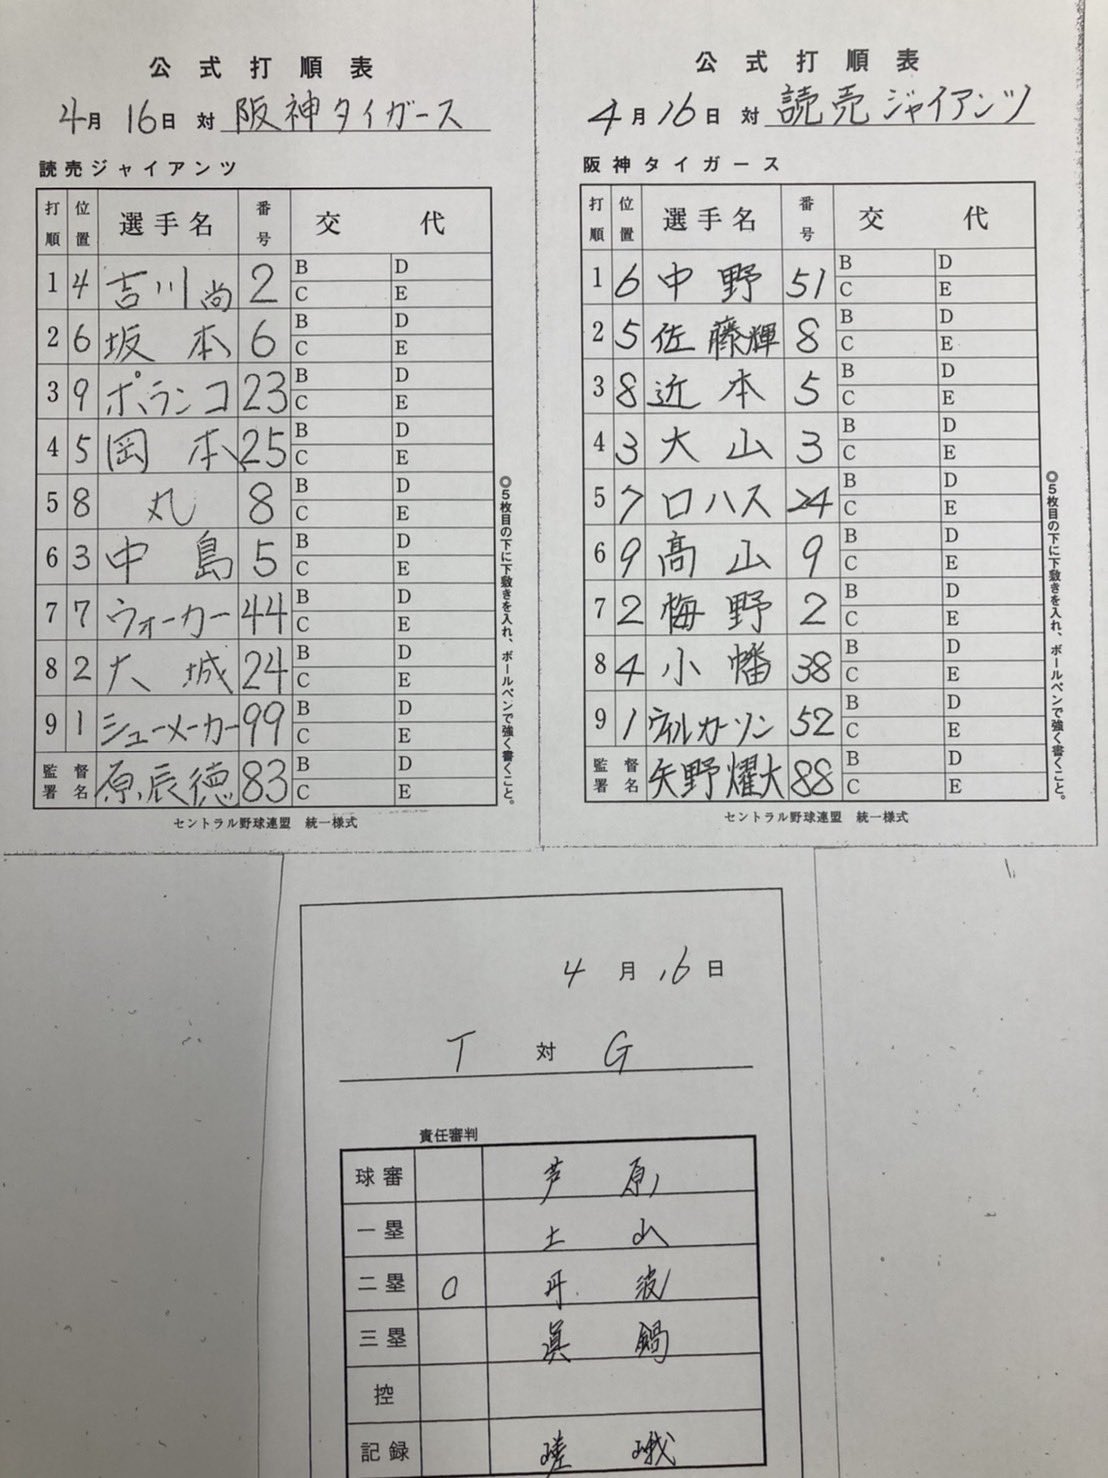 公式打順表
4月16日 対 阪神タイガース
読売ジャイアンツ
打順 位置 選手名 番号 交代
1 4 吉川尚 2 B D C E
2 6 坂本 6 B D C E
3 9 ポランコ 23 B D C E
4 5 岡本 25 B D C E
5 8 丸 8 B D C E
6 3 中島 5 B D C E
7 7 ウォーカー 44 B D C E
8 2 大城 24 B D C E
9 1 シューメーカー 99 B D C E
監督署名 原辰徳 83 B D C E
セントラル野球連盟 統一様式
◎5枚目の下に下敷きを入れ、ボールペンで強く書くこと。
公式打順表
4月16日 対 読売ジャイアンツ
阪神タイガース
打順 位置 選手名 番号 交代
1 6 中野 51 B D C E
2 5 佐藤輝 8 B D C E
3 8 近本 5 B D C E
4 3 大山 3 B D C E
5 7 ロハス 24 B D C E
6 9 高山 9 B D C E
7 2 梅野 2 B D C E
8 4 小幡 38 B D C E
9 1 ウィルカーソン 52 B D C E
監督署名 矢野燿大 88 B D C E
セントラル野球連盟 統一様式
◎5枚目の下に下敷きを入れ、ボールペンで強く書くこと。
4月16日
T 対 G
責任審判
球審 芦原
一塁 土山
二塁 ○ 丹波
三塁 眞鍋
控
記録 嵯峨